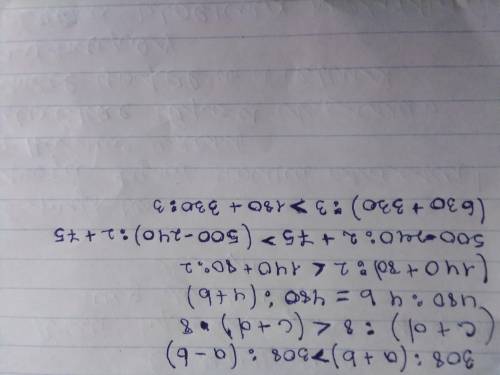 308 : (a+b) > 308 : (a-b)
(c+d) : 8 < (c+d) • 8
480 : 4 b = 480 : (4+b)
(140 + 80) : 2 < 140 + 80:2
500-240:2 + 75 > (500-240):2+75
(630 + 330) : 3 > 180 + 330:3